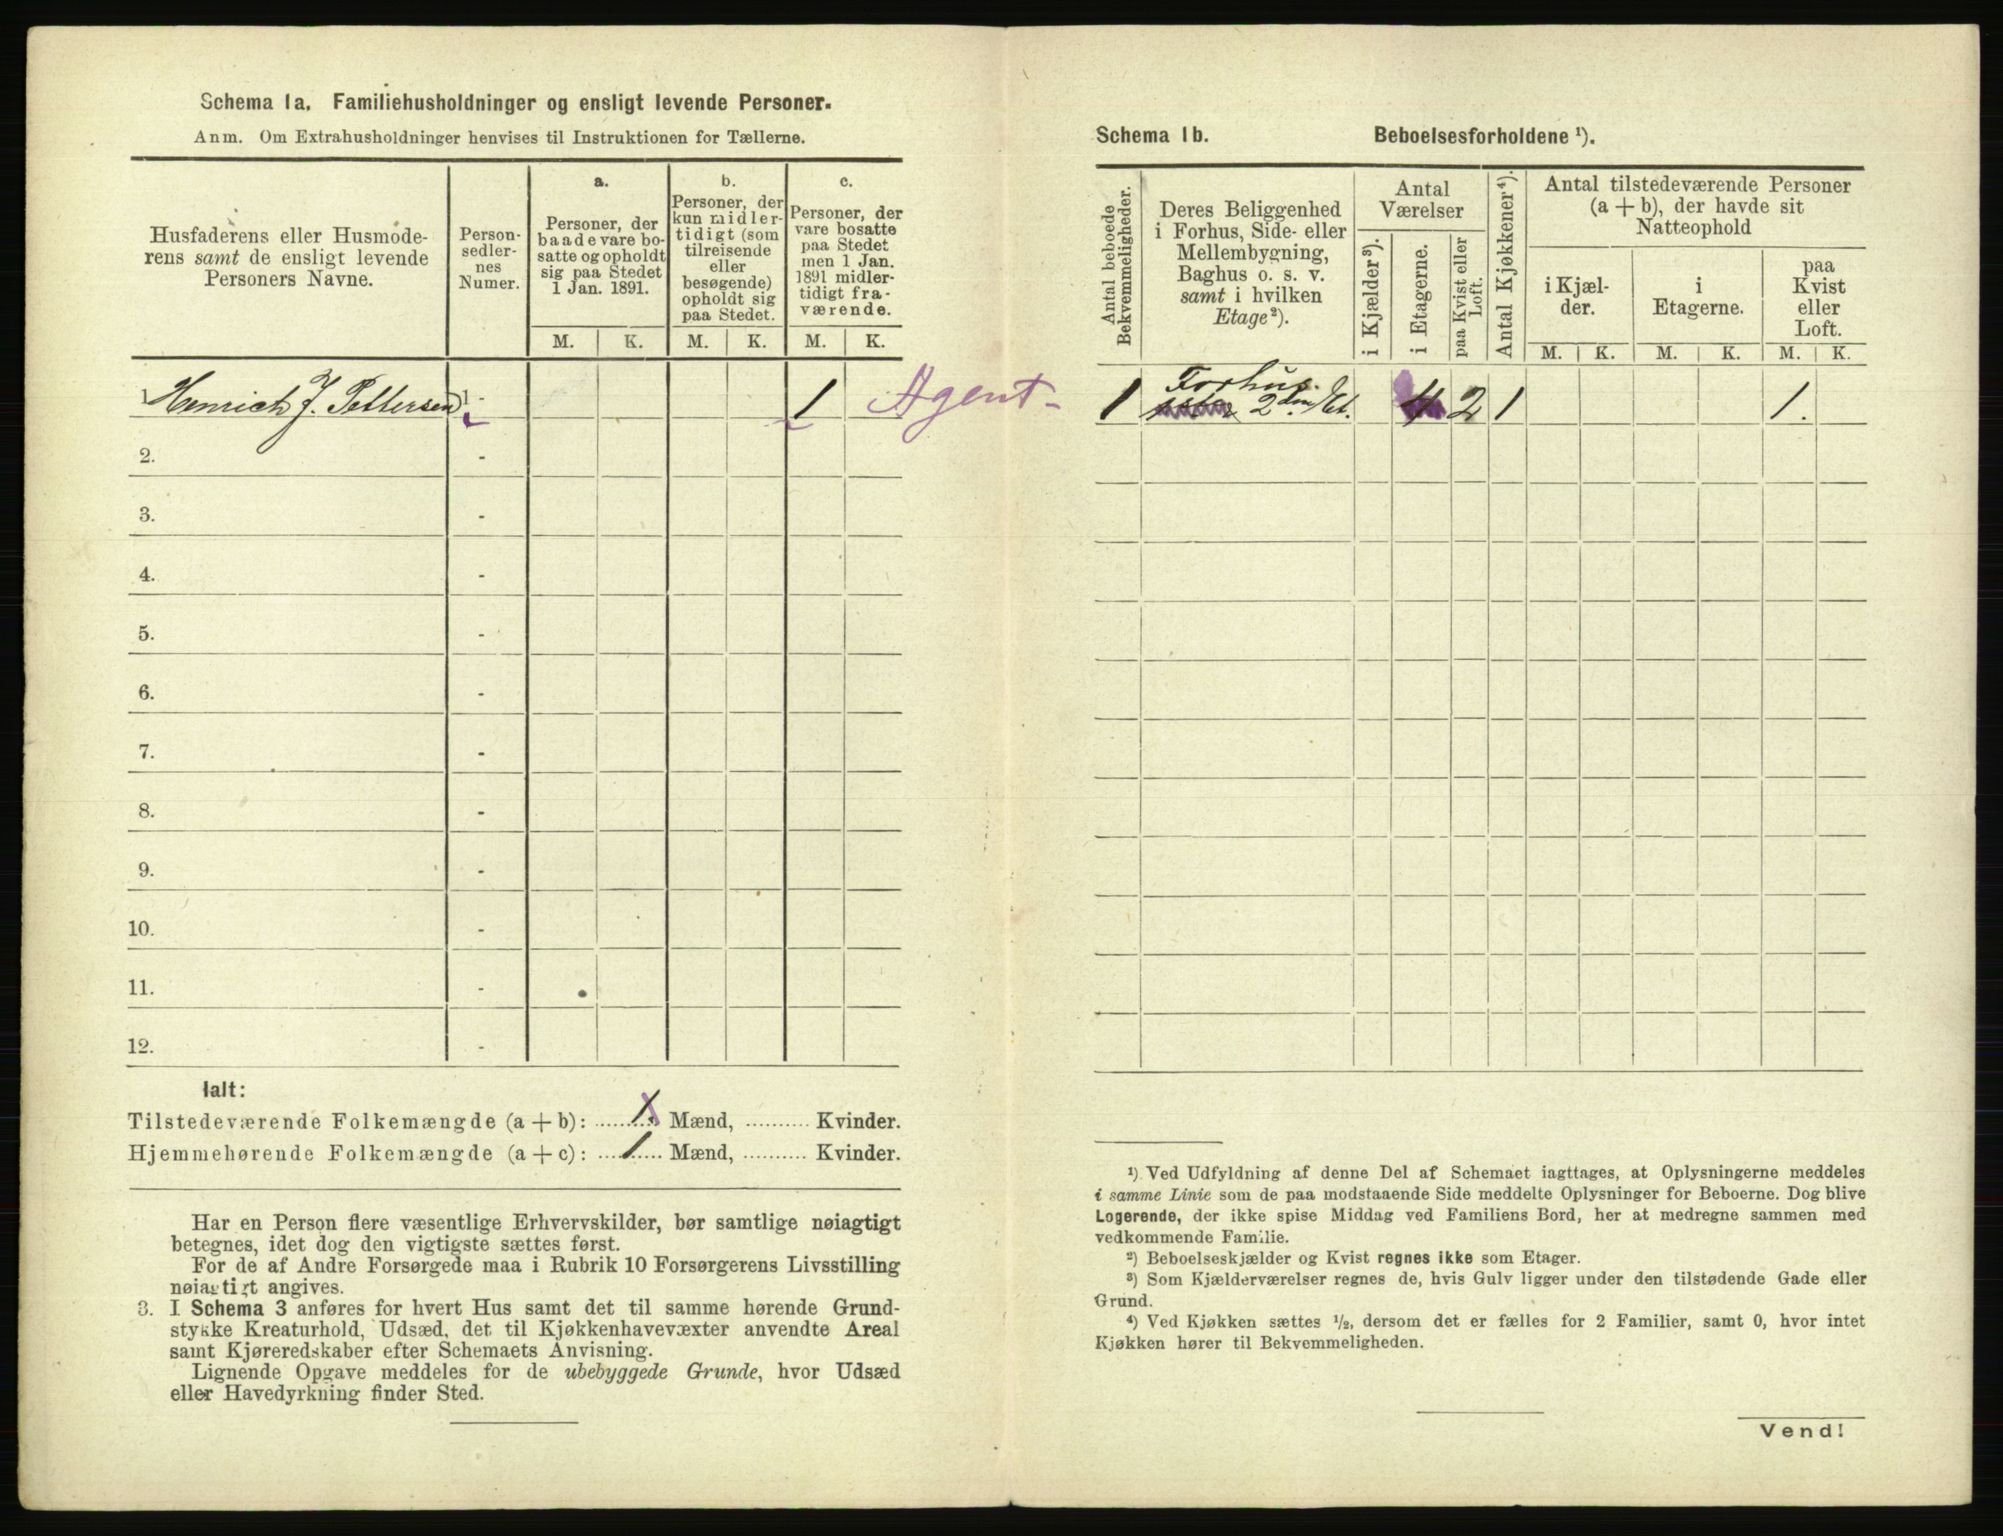 Schema 1a. Familiehusholdninger og ensligt levende Personer.
Anm. Om Extrahusholdninger henvises til Instruktionen for Tællerne.
Husfaderens eller Husmode-
rens samt de ensligt levende
Personers Navne.
Person-
sedler-
nes
Numer.
a.
Personer, der
baade vare bo-
satte og opholdt
sig paa Stedet
1 Jan. 1891.
b.
Personer, der
kun midler-
tidigt (som
tilreisende
eller
besøgende)
opholdt sig
paa Stedet.
c.
Personer, der
vare bosatte
paa Stedet
men 1 Jan.
1891 midler-
tidigt fra-
værende.
M. K. M. K. M. K.
1 Henrich J. Pettersen 1 - 1 Agent -
2. -
3. -
4. -
5. -
6. -
7. -
8. -
9. -
10. -
11. -
12. -
Ialt:
Tilstedeværende Folkemængde (a + b): 1. Mænd, .......... Kvinder.
Hjemmehørende Folkemængde (a + c): 1 Mænd, .......... Kvinder.
Har en Person flere væsentlige Erhvervskilder, bør samtlige nøiagtigt
betegnes, idet dog den vigtigste sættes først.
For de af Andre Forsørgede maa i Rubrik 10 Forsørgerens Livsstilling
nøiagtigt angives.
3. I Schema 3 anføres for hvert Hus samt det til samme hørende Grund-
stykke Kreaturhold, Udsæd, det til Kjøkkenhavevæxter anvendte Areal
samt Kjøreredskaber efter Schemaets Anvisning.
Lignende Opgave meddeles for de ubebyggede Grunde, hvor Udsæd
eller Havedyrkning finder Sted.
Schema 1b. Beboelsesforholdene ¹).
Antal beboede
Bekvemmeligheder.
Deres Beliggenhed
i Forhus, Side- eller
Mellembygning,
Baghus o. s. v.
samt i hvilken
Etage²).
Antal
Værelser
i Kjælder³).
i Etagerne.
paa Kvist eller
Loft.
Antal Kjøkkener⁴).
Antal tilstedeværende Personer
(a + b), der havde sit
Natteophold
i Kjæl-
der.
i
Etagerne.
paa
Kvist
eller
Loft.
M. K. M. K. M. K.
Forhus.
1 2den Et. 4 2 1 1.
¹) Ved Udfyldning af denne Del af Schemaet iagttages, at Oplysningerne meddeles
i samme Linie som de paa modstaaende Side meddelte Oplysninger for Beboerne. Dog blive
Logerende, der ikke spise Middag ved Familiens Bord, her at medregne sammen med
vedkommende Familie.
²) Beboelseskjælder og Kvist regnes ikke som Etager.
³) Som Kjælderværelser regnes de, hvis Gulv ligger under den tilstødende Gade eller
Grund.
⁴) Ved Kjøkken sættes ½, dersom det er fælles for 2 Familier, samt 0, hvor intet
Kjøkken hører til Bekvemmeligheden.
Vend!